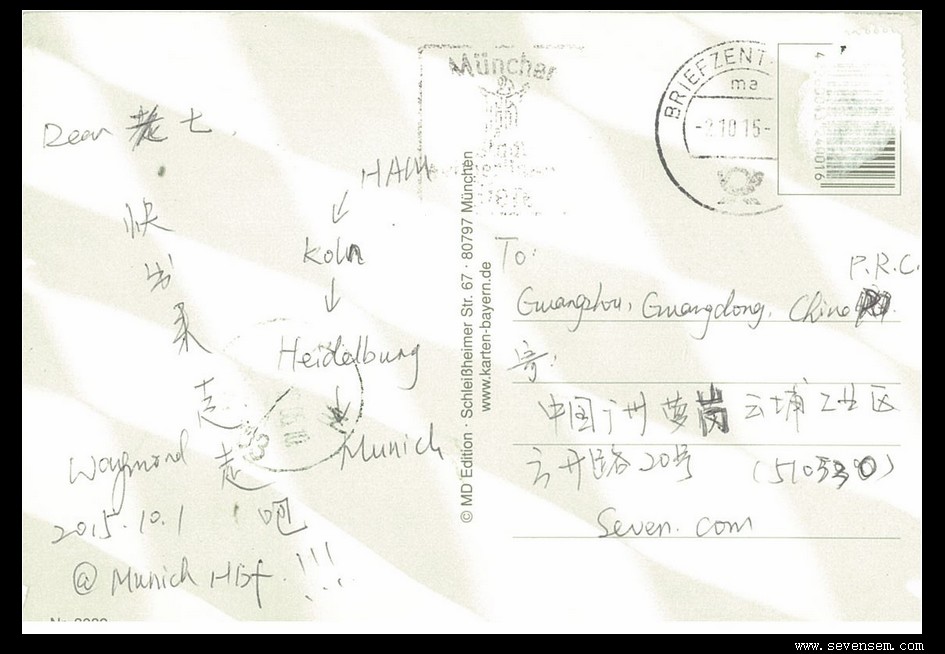 Dear 老七.
快
出
来
走
走
吧
!!!
HAM
↓
Koln
↓
Heidelburg
↓
Munich
Waymond
2015.10.1
@ Munich Hbf.
© MD Edition · Schleißheimer Str. 67 · 80797 München
www.karten-bayern.de
BRIEFZENT
ma
10.15-
40016
To:
P.R.C.
Guangzhou, Guangdong, China
寄:
中国广州萝岗云埔工业区
云开路20号 (510530)
Seven.com
www.sevensem.com